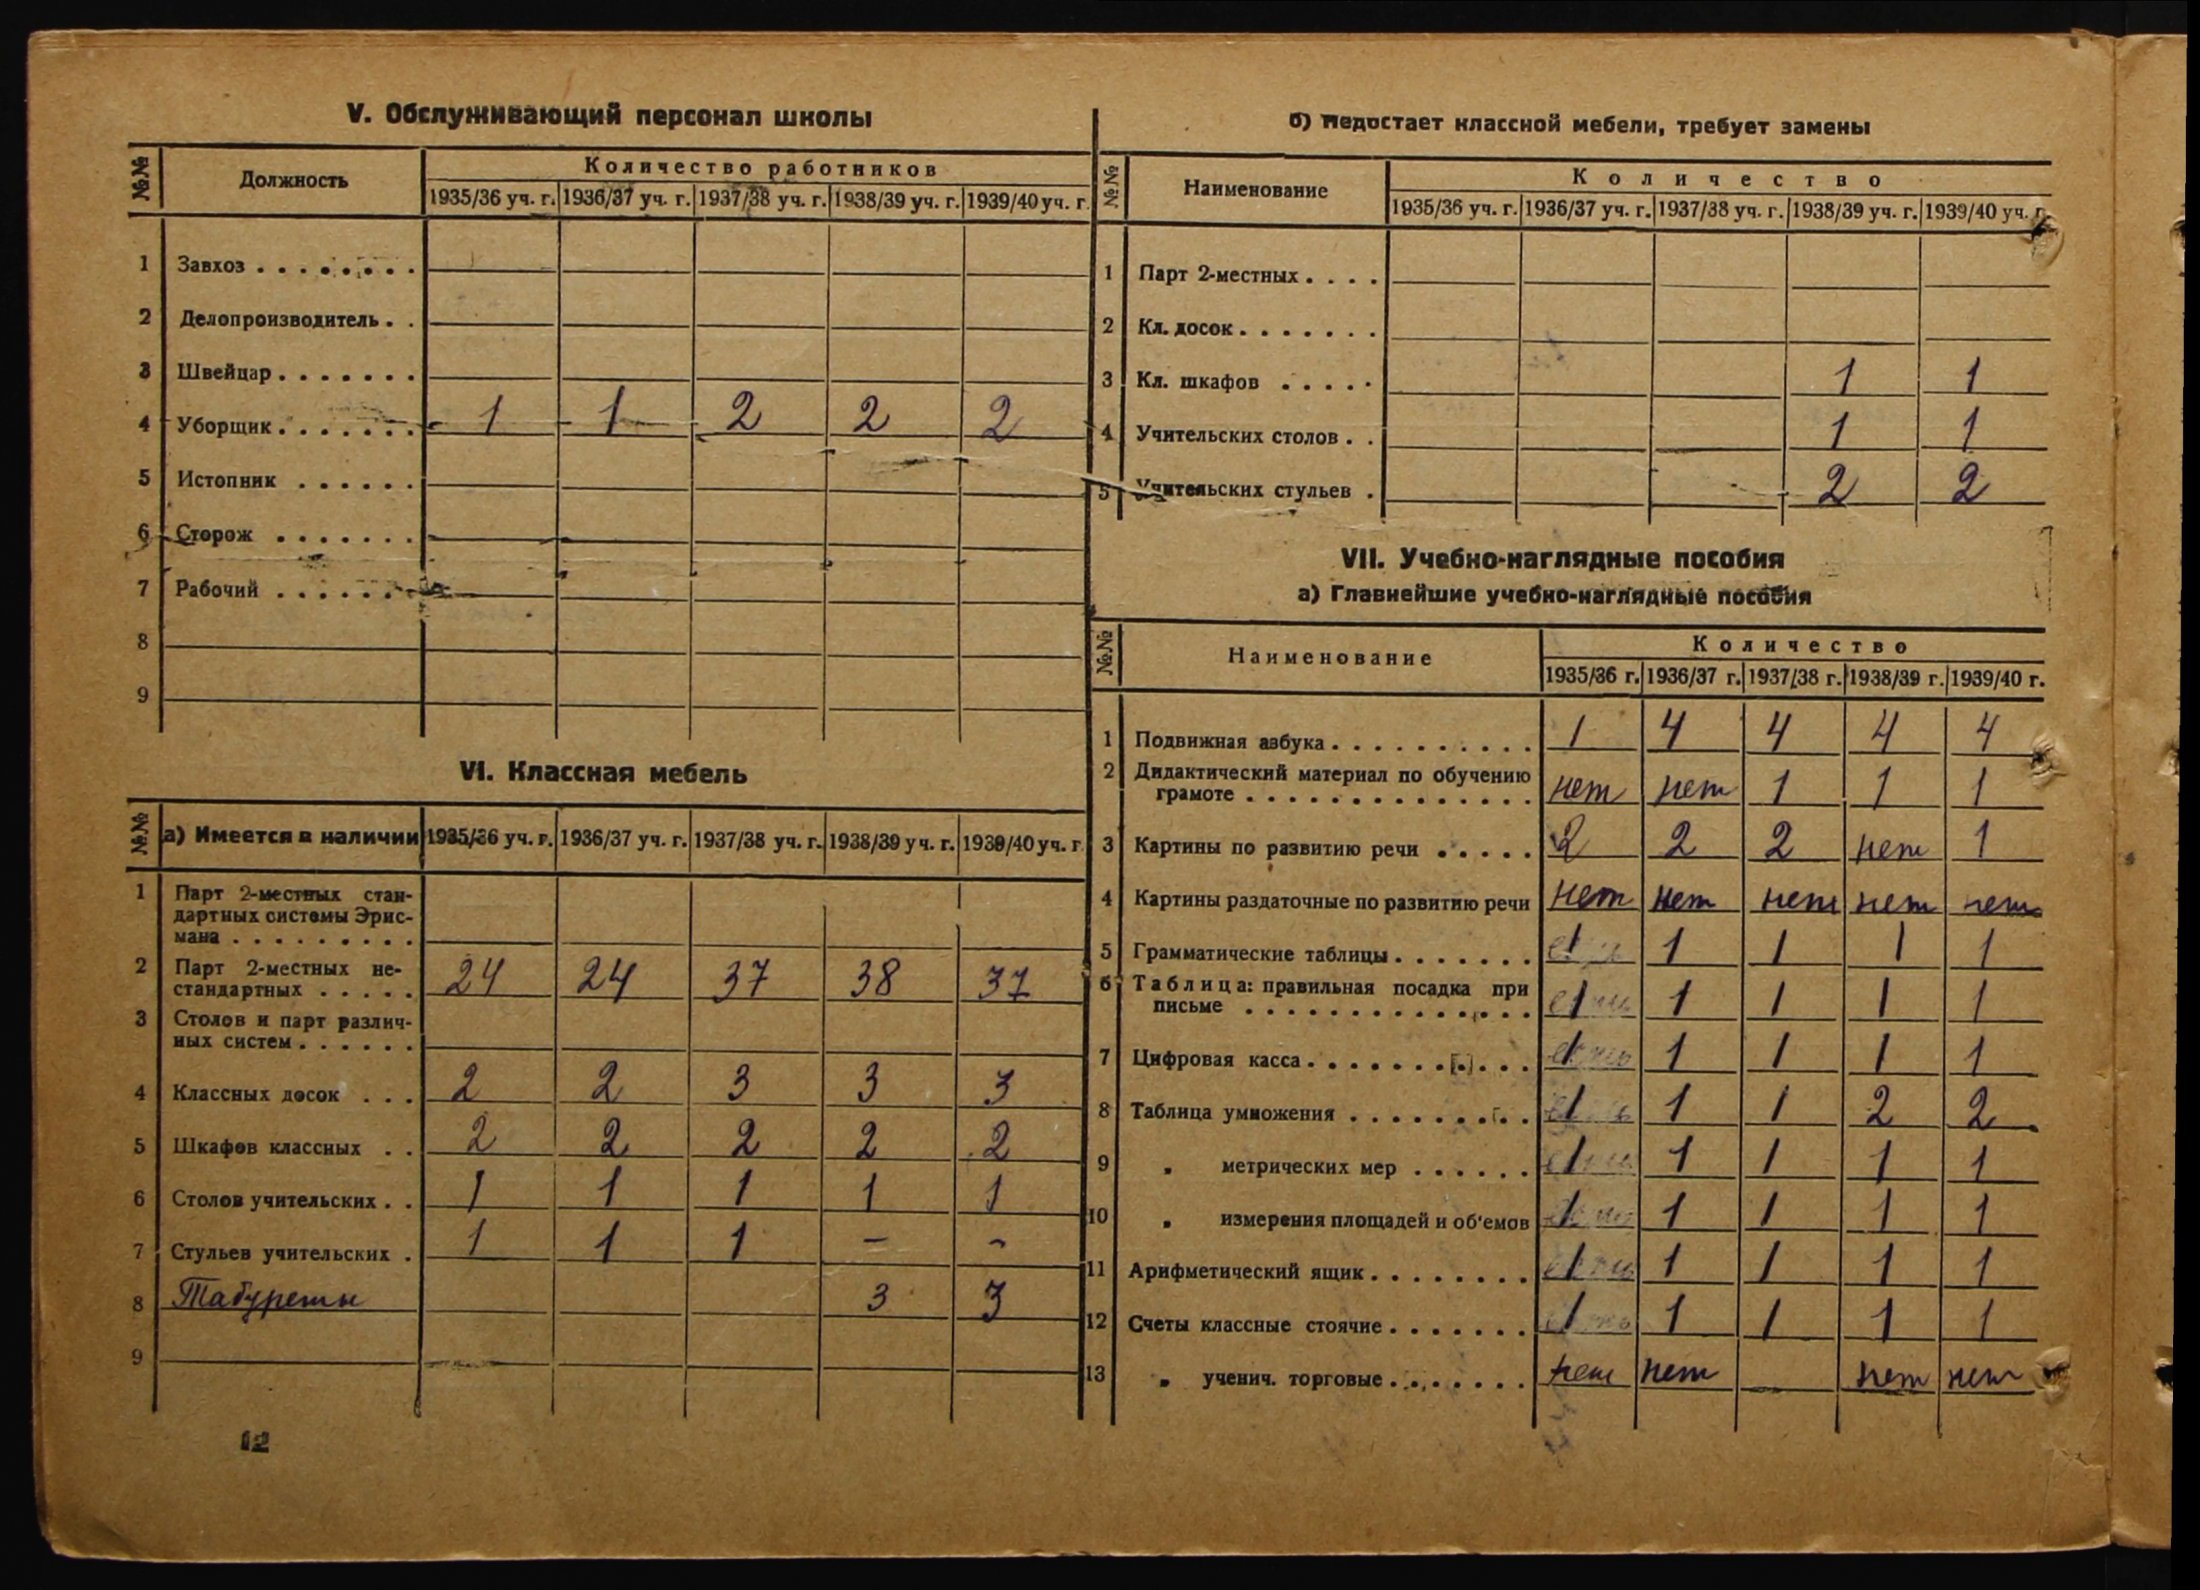 V. Обслуживающий персонал школы
№№ Должность Количество работников
1935/36 уч. г. 1936/37 уч. г. 1937/38 уч. г. 1938/39 уч. г. 1939/40 уч. г.
1 Завхоз . . . . . . . .
2 Делопроизводитель . .
3 Швейцар . . . . . . .
4 Уборщик . . . . . . . 1 1 2 2 2
5 Истопник . . . . . .
6 Сторож . . . . . . .
7 Рабочий . . . . . . .
8
9
VI. Классная мебель
№№ а) Имеется в наличии 1935/36 уч. г. 1936/37 уч. г. 1937/38 уч. г. 1938/39 уч. г. 1939/40 уч. г
1 Парт 2-местных стан-
дартных системы Эрис-
мана . . . . . . . . .
2 Парт 2-местных не-
стандартных . . . . . 24 24 37 38 37
3 Столов и парт различ-
ных систем . . . . . .
4 Классных досок . . . 2 2 3 3 3
5 Шкафов классных . . 2 2 2 2 2
6 Столов учительских . . 1 1 1 1 1
7 Стульев учительских . 1 1 1 – –
8 Табуреты 3 3
9
12
б) Недостает классной мебели, требует замены
№№ Наименование Количество
1935/36 уч. г. 1936/37 уч. г. 1937/38 уч. г. 1938/39 уч. г. 1939/40 уч. г.
1 Парт 2-местных . . . .
2 Кл. досок . . . . . . .
3 Кл. шкафов . . . . . 1 1
4 Учительских столов . . 1 1
5 Учительских стульев . 2 2
VII. Учебно-наглядные пособия
а) Главнейшие учебно-наглядные пособия
№№ Наименование Количество
1935/36 г. 1936/37 г. 1937/38 г. 1938/39 г. 1939/40 г.
1 Подвижная азбука . . . . . . . . . . 1 4 4 4 4
2 Дидактический материал по обучению
грамоте . . . . . . . . . . . . . . нет нет 1 1 1
3 Картины по развитию речи . . . . . 2 2 2 нет 1
4 Картины раздаточные по развитию речи нет нет нет нет нет
5 Грамматические таблицы . . . . . . . 1 1 1 1 1
6 Таблица: правильная посадка при
письме . . . . . . . . . . . . . . 1 1 1 1 1
7 Цифровая касса . . . . . . . [.] . . . 1 1 1 1 1
8 Таблица умножения . . . . . . . . . 1 1 1 2 2
9 „ метрических мер . . . . . . 1 1 1 1 1
10 „ измерения площадей и об'емов 1 1 1 1 1
11 Арифметический ящик . . . . . . . . 1 1 1 1 1
12 Счеты классные стоячие . . . . . . . 1 1 1 1 1
13 „ ученич. торговые . . . . . . . нет нет нет нет